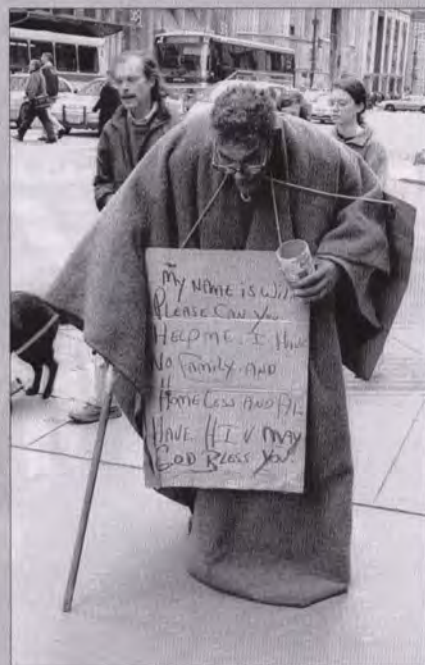 My NAME is Wil
PLEASE CAN You
HELP ME. I HAVE
No FAMILY. AND
HOMELESS AND
HAVE HIV MAY
GOD BLESS You.